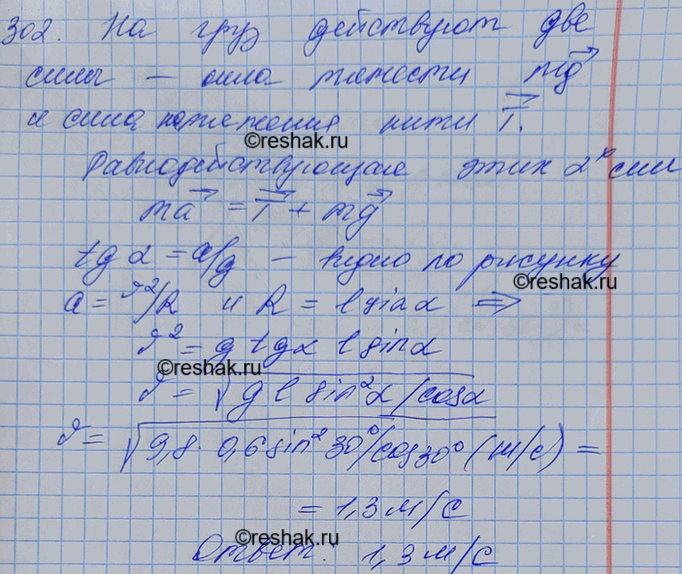 302. На груз действуют две
силы — сила тяжести mg⃗
и сила натяжения нити T⃗.
©reshak.ru
Равнодействующая этих 2х сил
ma⃗ = T⃗ + mg⃗
tg α = a/g — видно по рисунку
©reshak.ru
a = v²/R и R = l sin α ⇒
v² = g tg α l sin α
©reshak.ru
v = √(g l sin²α/cos α)
v = √(9,8 · 0,6 sin² 30°/cos 30°) (м/с) =
= 1,3 м/с
©reshak.ru
Ответ: 1,3 м/с